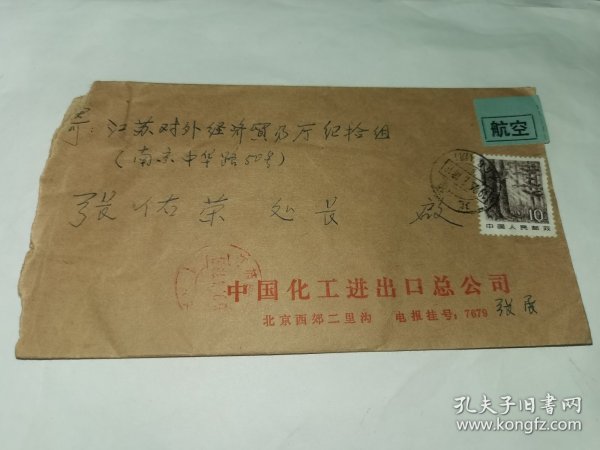 寄：江苏对外经济贸易厅纪检组
（南京中华路50号）
航空
张佑荣处长 啟
10
中国人民邮政
中国化工进出口总公司
北京西郊二里沟 电报挂号：7679
张
孔夫子旧书网
www.kongfz.com